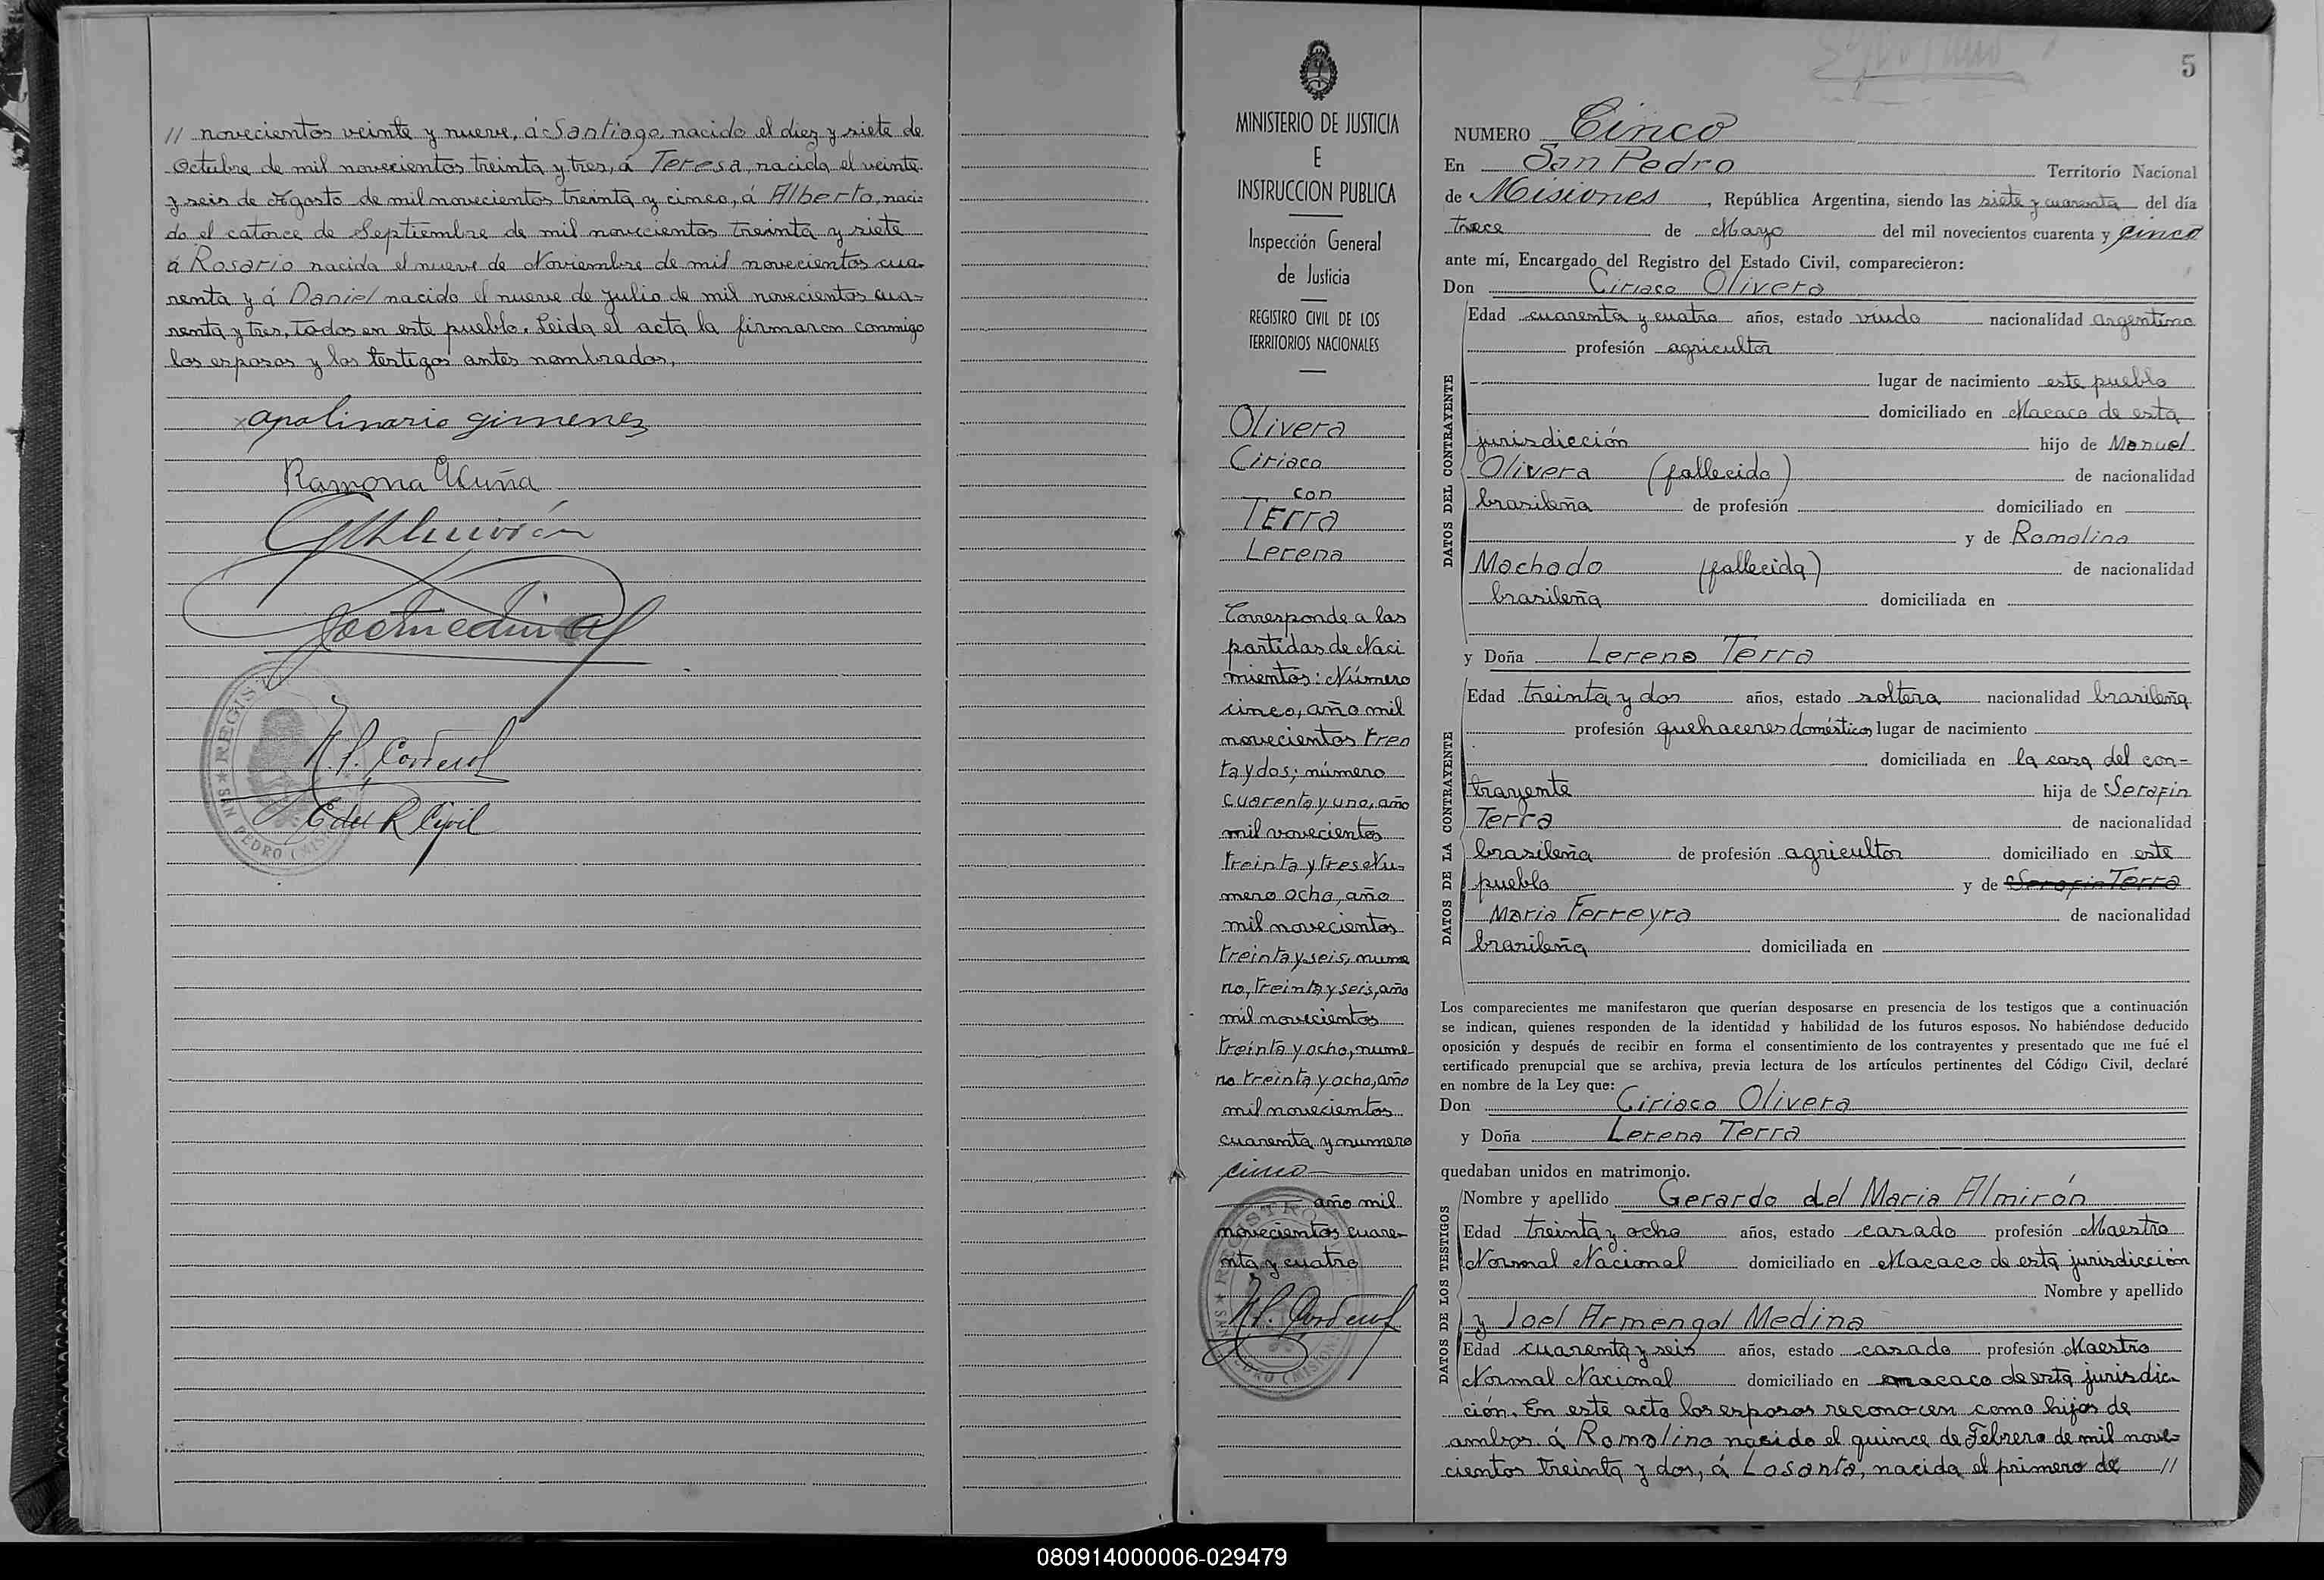 // novecientos veinte y nueve, á Santiago, nacido el diez y siete de
Octubre de mil novecientos treinta y tres, á Teresa, nacida el veinte
y seis de Agosto de mil novecientos treinta y cinco, á Alberto, naci-
do el catorce de Septiembre de mil novecientos treinta y siete
á Rosario nacida el nueve de Noviembre de mil novecientos cua-
renta y á Daniel nacido el nueve de Julio de mil novecientos cua-
renta y tres, todos en este pueblo. Leida el acta la firmaron conmigo
los esposos y los testigos antes nombrados,
x apolinario gimenez
Ramona Acuña
N. P. Cordero
E. del R. Civil
★ REGIS
SAN PEDRO (MIS
MINISTERIO DE JUSTICIA
E
INSTRUCCION PUBLICA
Inspección General
de Justicia
REGISTRO CIVIL DE LOS
TERRITORIOS NACIONALES
Olivera
Ciriaco
con
Terra
Lerena
Corresponde a las
partidas de Naci
mientos: Número
cinco, año mil
novecientos trein
ta y dos; número
cuarenta y uno, año
mil novecientos
treinta y tres Nú-
mero ocho, año
mil novecientos
treinta y seis, nume
ro, treinta y seis, año
mil novecientos
treinta y ocho, nume-
ro treinta y ocho, año
mil novecientos
cuarenta y numero
cinco
año mil
novecientos cuare-
nta y cuatro
N. P. Cordero
5
NUMERO Cinco
En San Pedro Territorio Nacional
de Misiones, República Argentina, siendo las siete y cuarenta del día
trece de Mayo del mil novecientos cuarenta y cinco
ante mí, Encargado del Registro del Estado Civil, comparecieron:
Don Ciriaco Olivera
DATOS DEL CONTRAYENTE
Edad cuarenta y cuatro años, estado viudo nacionalidad argentino
profesión agricultor
lugar de nacimiento este pueblo
domiciliado en Macaco de esta
jurisdicción hijo de Manuel
Olivera (fallecido) de nacionalidad
brasileña de profesión domiciliado en
y de Romalina
Machado (fallecida) de nacionalidad
brasileña domiciliada en
y Doña Lerena Terra
DATOS DE LA CONTRAYENTE
Edad treinta y dos años, estado soltera nacionalidad brasileña
profesión quehaceres domésticos lugar de nacimiento
domiciliada en la casa del con-
trayente hija de Serafin
Terra de nacionalidad
brasileña de profesión agricultor domiciliado en este
pueblo y de Serafin Terra
Maria Ferreyra de nacionalidad
brasileña domiciliada en
Los comparecientes me manifestaron que querían desposarse en presencia de los testigos que a continuación
se indican, quienes responden de la identidad y habilidad de los futuros esposos. No habiéndose deducido
oposición y después de recibir en forma el consentimiento de los contrayentes y presentado que me fué el
certificado prenupcial que se archiva, previa lectura de los artículos pertinentes del Código Civil, declaré
en nombre de la Ley que:
Don Ciriaco Olivera
y Doña Lerena Terra
quedaban unidos en matrimonio.
DATOS DE LOS TESTIGOS
Nombre y apellido Gerardo del Maria Almirón
Edad treinta y ocho años, estado casado profesión Maestro
Normal Nacional domiciliado en Macaco de esta jurisdicción
Nombre y apellido
y Joel Armengol Medina
Edad cuarenta y seis años, estado casado profesión Maestro
Normal Nacional domiciliado en macaco de esta jurisdic-
ción. En este acto los esposos reconocen como hijos de
ambos á Romolino nacido el quince de Febrero de mil nove-
cientos treinta y dos, á Losanta, nacida el primero de //
080914000006-029479